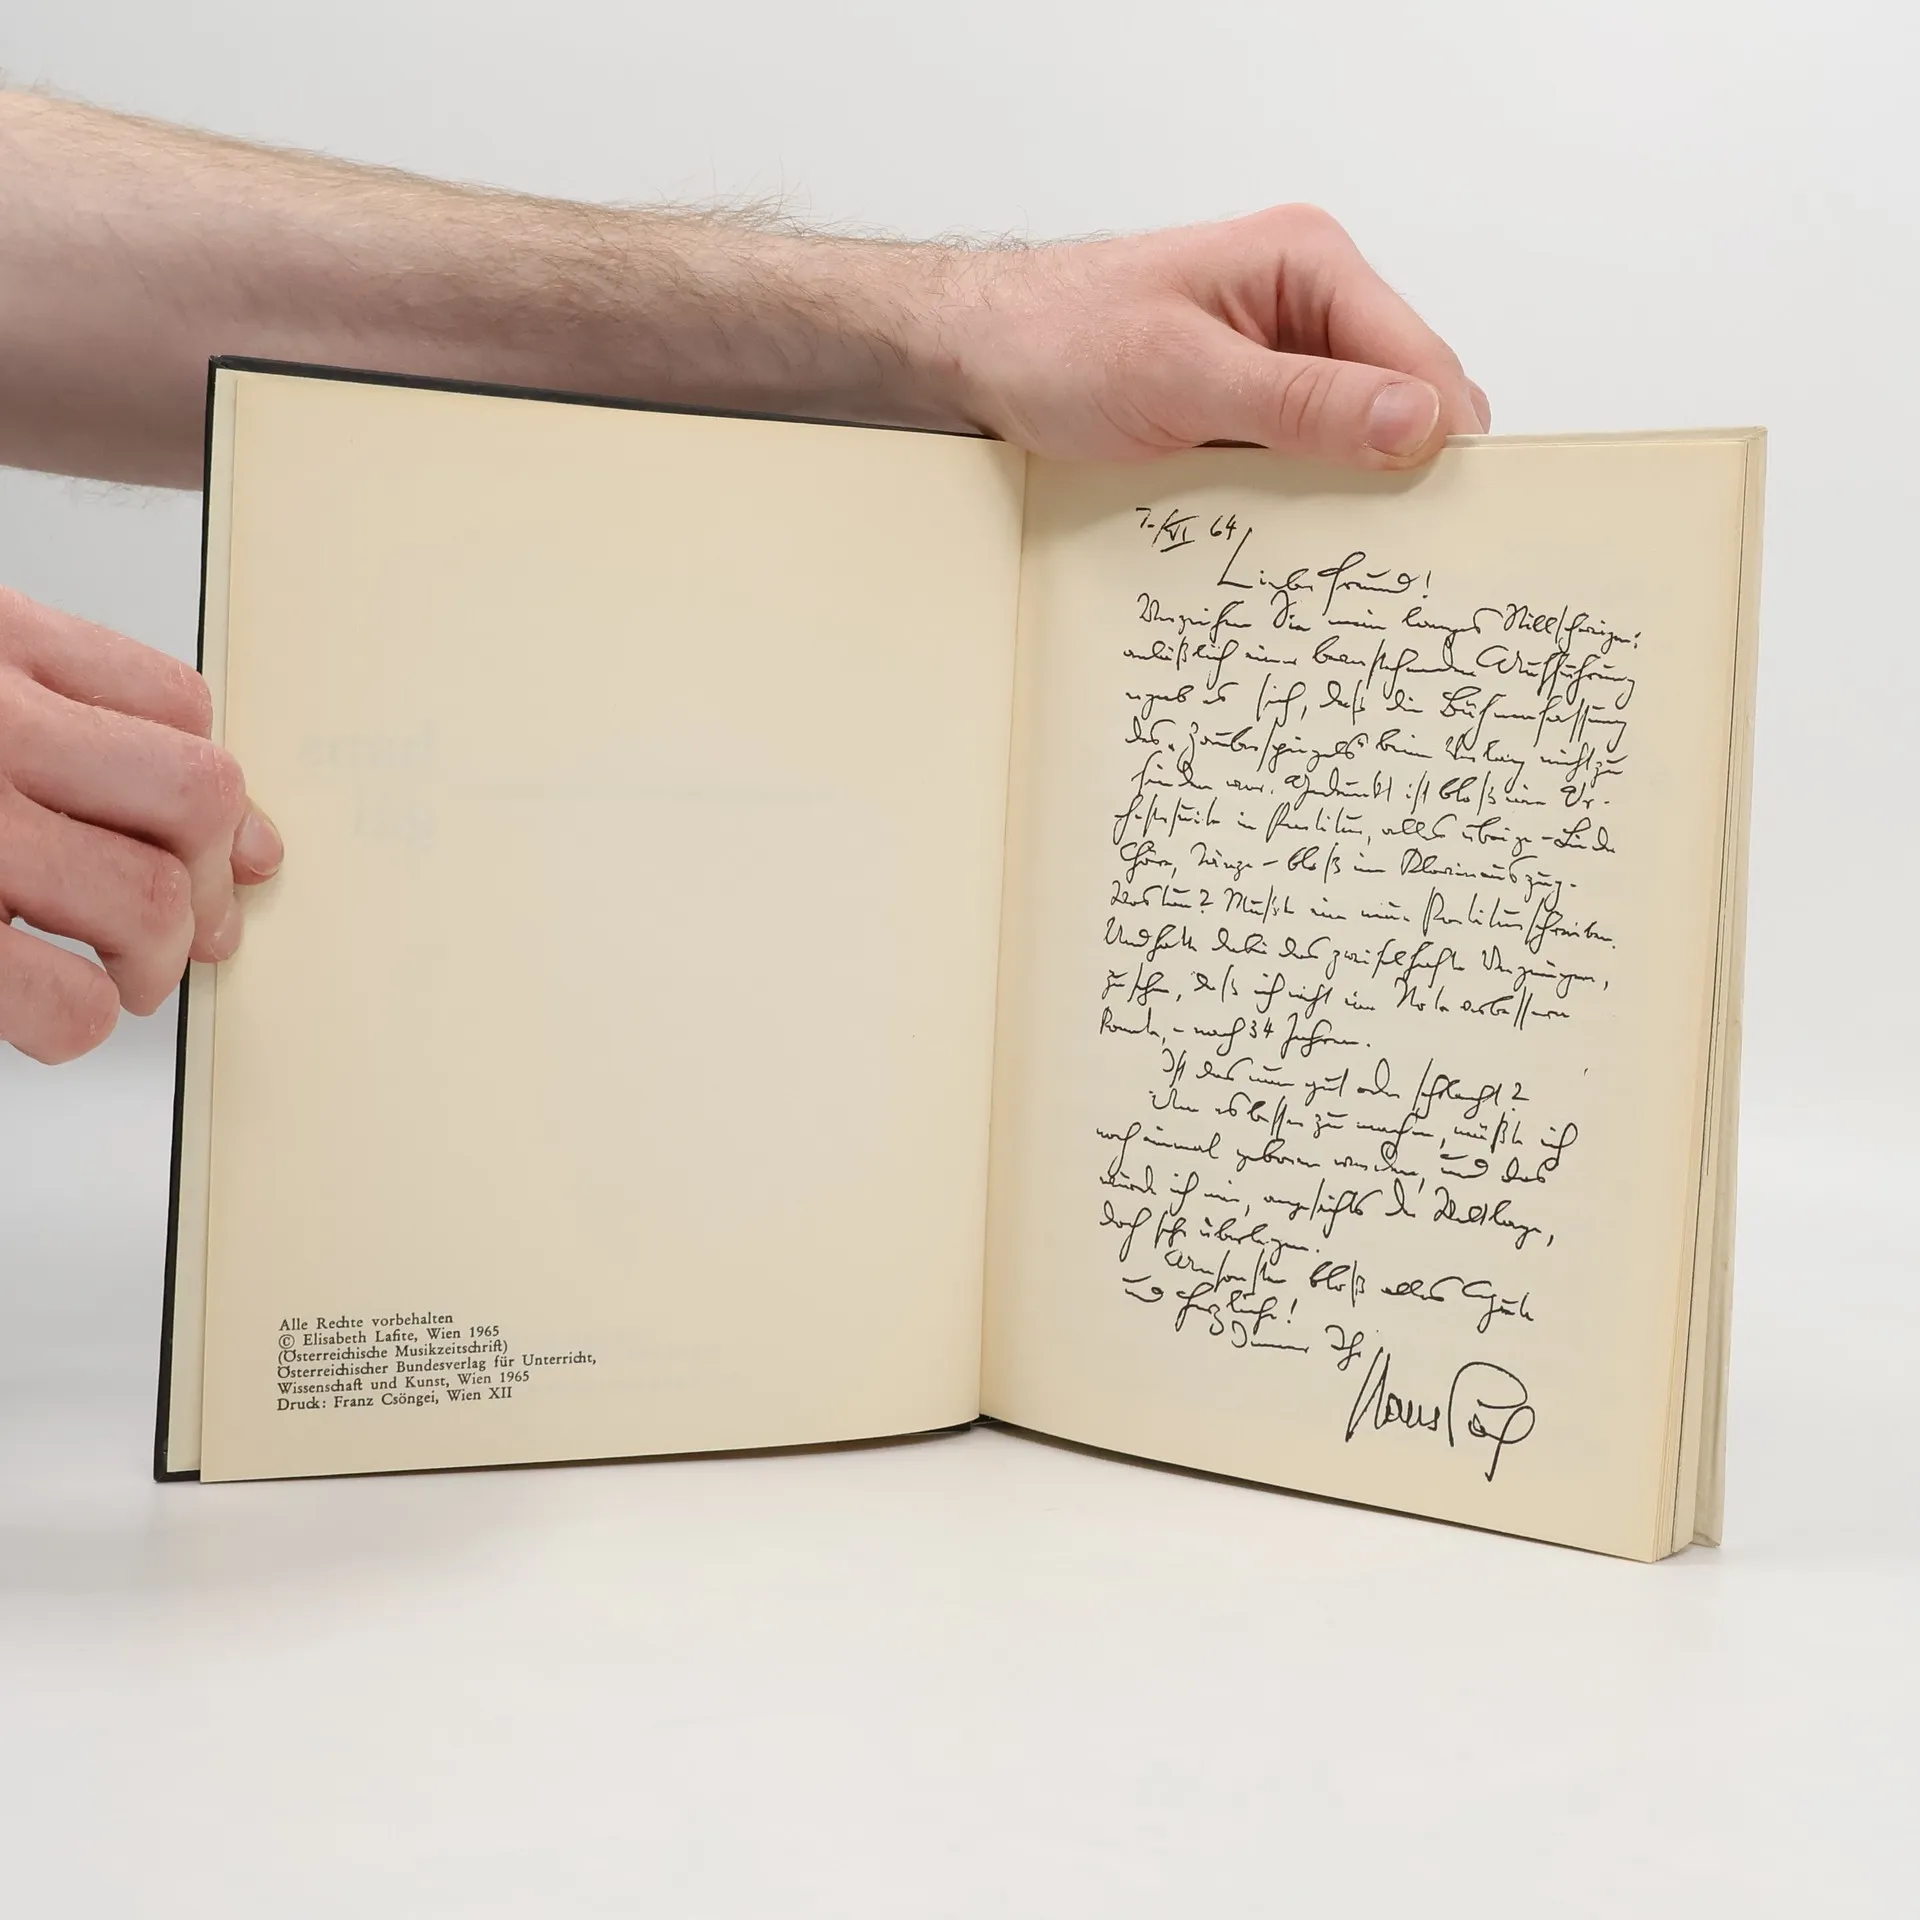 Alle Rechte vorbehalten
© Elisabeth Lafite, Wien 1965
(Österreichische Musikzeitschrift)
Österreichischer Bundesverlag für Unterricht,
Wissenschaft und Kunst, Wien 1965
Druck: Franz Csöngei, Wien XII
7./VI 64
Lieber Freund!
Verzeihen Sie mein langes Stillschweigen:
anläßlich einer bevorstehenden Aufführung
ergab es sich, daß die Bühnenfassung
des „Zauberspiegels" beim Verlag nicht zu
finden war. Gedruckt ist bloß eine Or-
chestersuite in Partitur, alles übrige – Lieder
Chöre, Tänze – bloß im Klavierauszug.
Was tun? Mußte eine neue Partitur schreiben.
Und hatte dabei das zweifelhafte Vergnügen,
zu sehen, daß ich nicht eine Note verbessern
konnte, – nach 34 Jahren.
Ist das nun gut oder schlecht?
Um es besser zu machen, müßte ich
noch einmal geboren werden, und das
würde ich mir, angesichts der Weltlage,
doch sehr überlegen.
Ansonsten bloß alles Gute
und Herzliche!
Immer Ihr
Hans